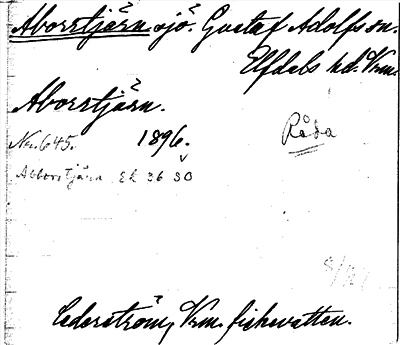 Aborrtjärn. sjö. Gustaf Adolfs sn.
Elfdals hd. Vrm.
Aborrtjärn.
Råda
No. 645. 1896.
Abborrtjärn Ek 36 SO
Cederström, Vrm. fiskevatten.